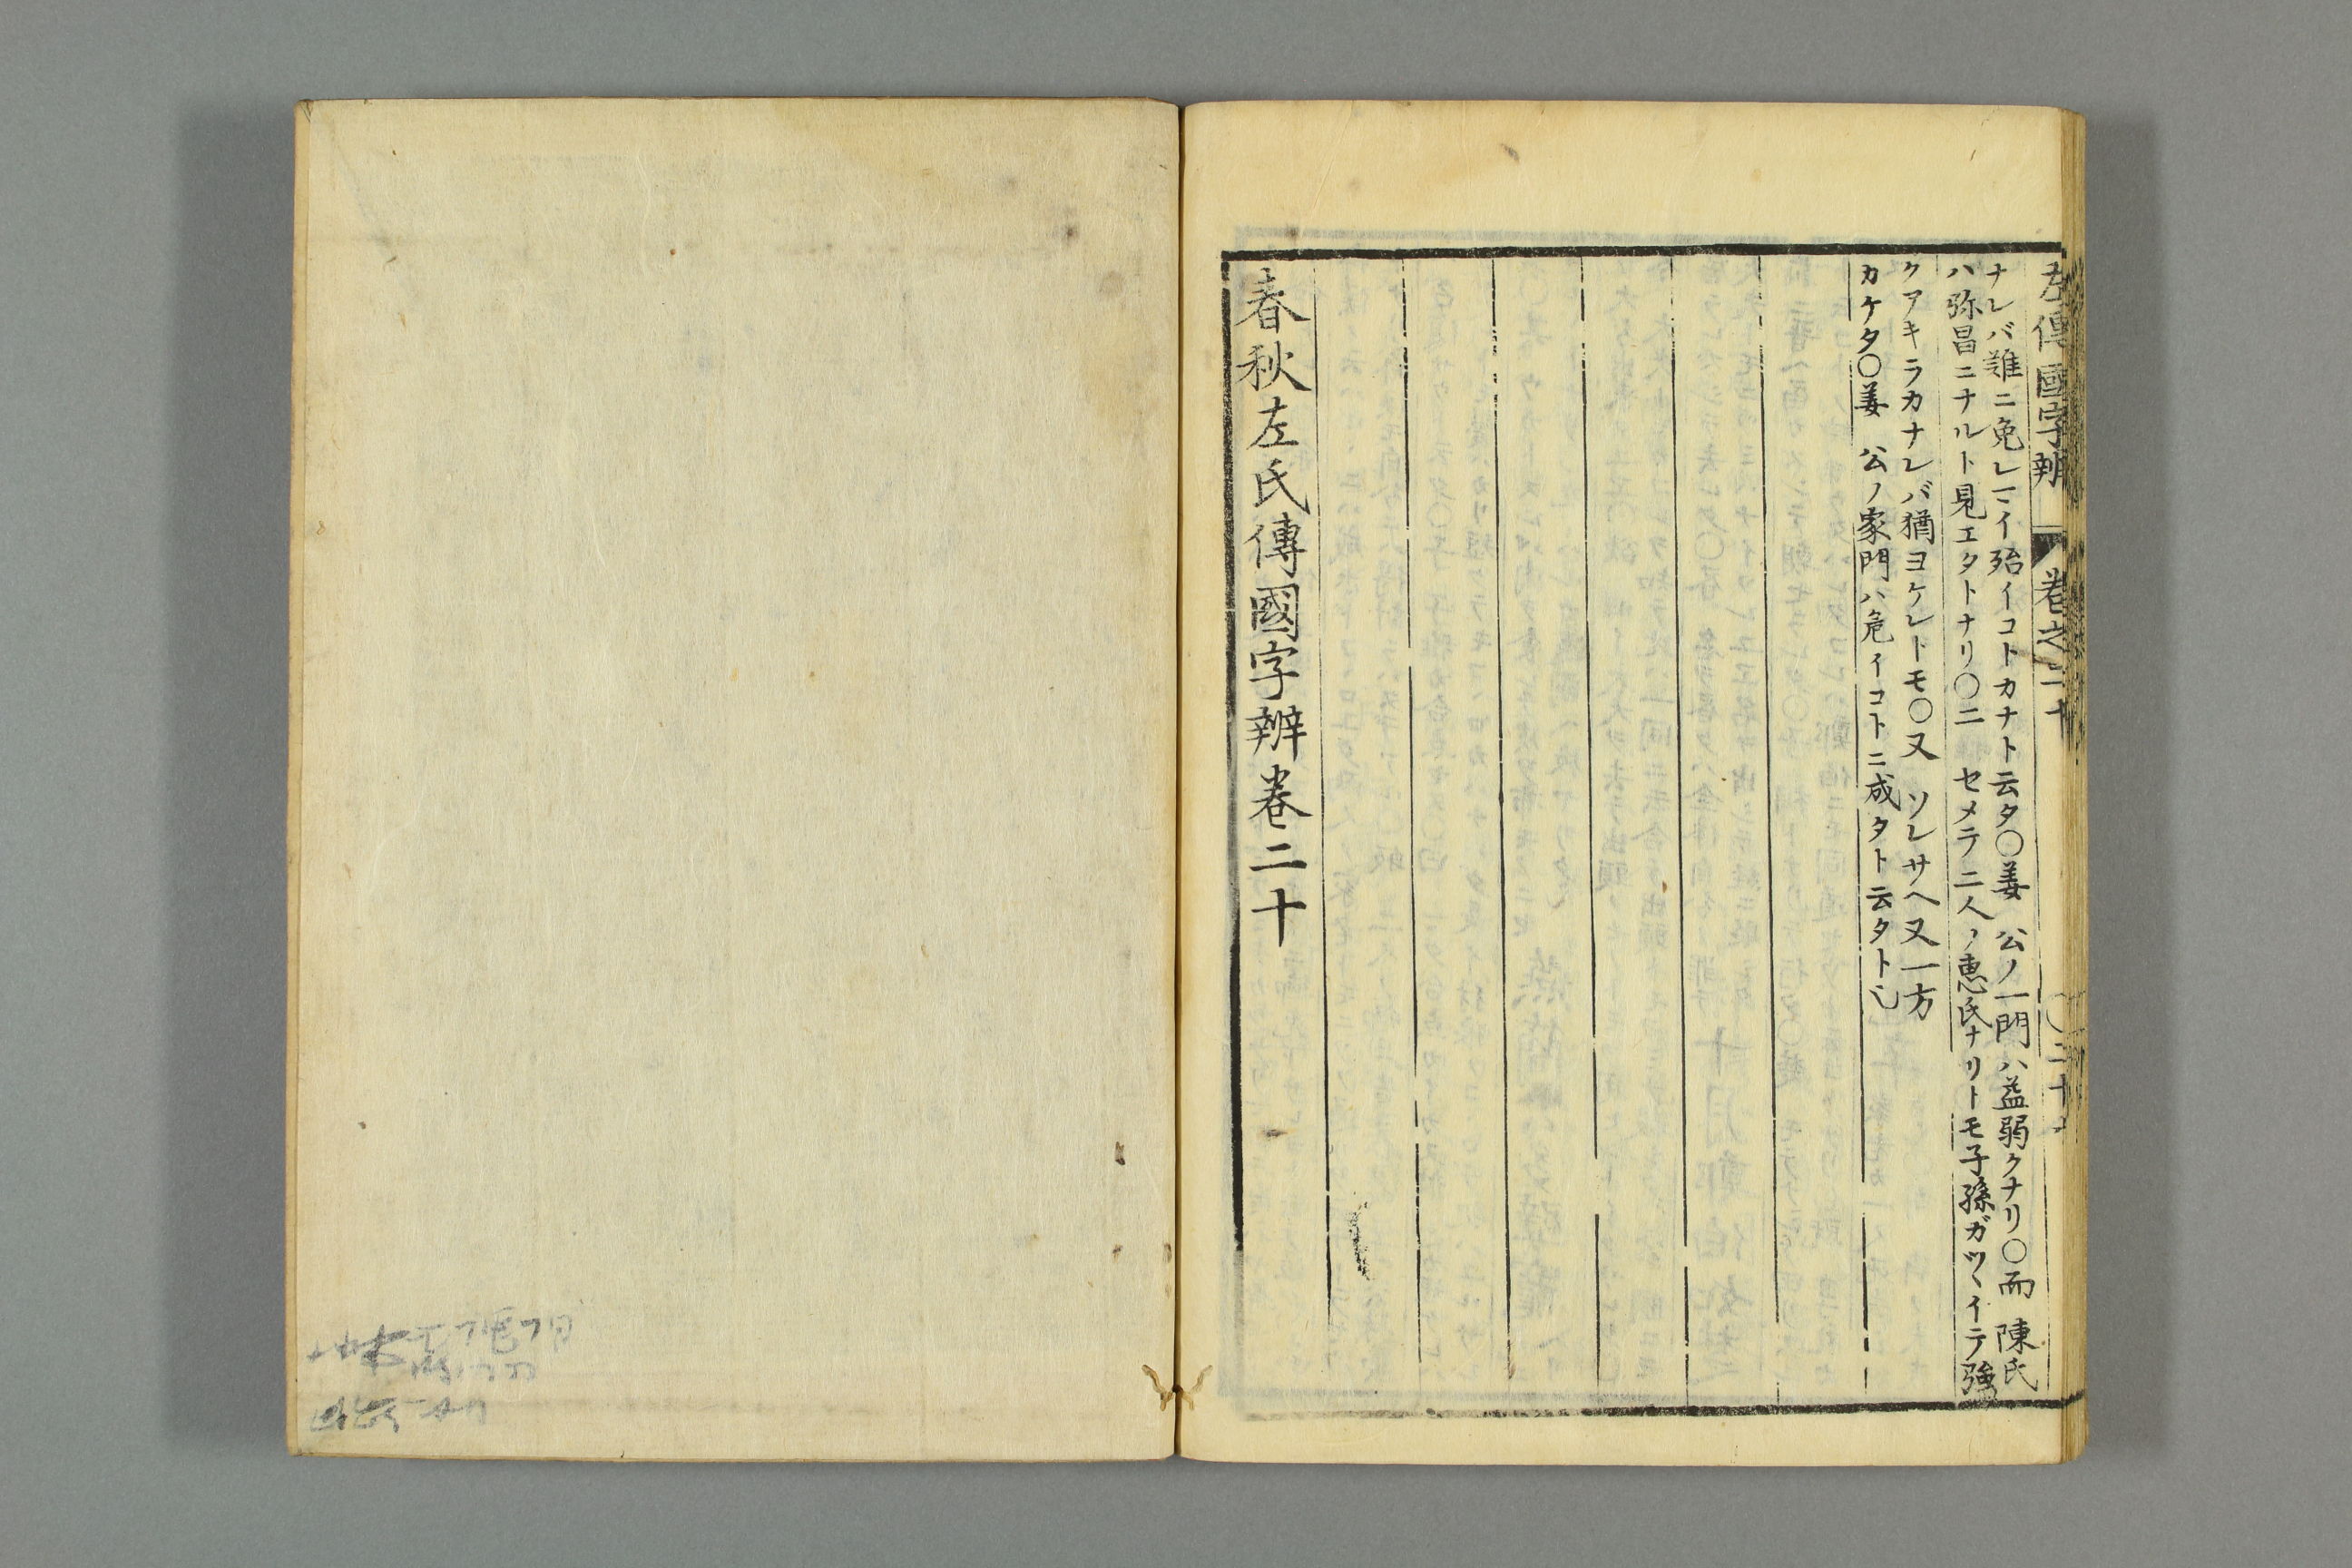 左傳國字辨 卷之二十 〇三十
ナレバ難ニ免レヿイ殆イコトカナト云タ〇姜 公ノ一門ハ益弱クナリ〇而 陳氏
ハ弥昌ニナルト見エタトナリ〇二 セメテ二人ノ惠氏ナリトモ子孫ガツヾイテ強
クアキラカナレバ猶ヨケレトモ〇又 ソレサヘ又一方
カケタ〇姜 公ノ家門ハ危イコトニ成タト云タト乄
春秋左氏傳國字辨卷二十